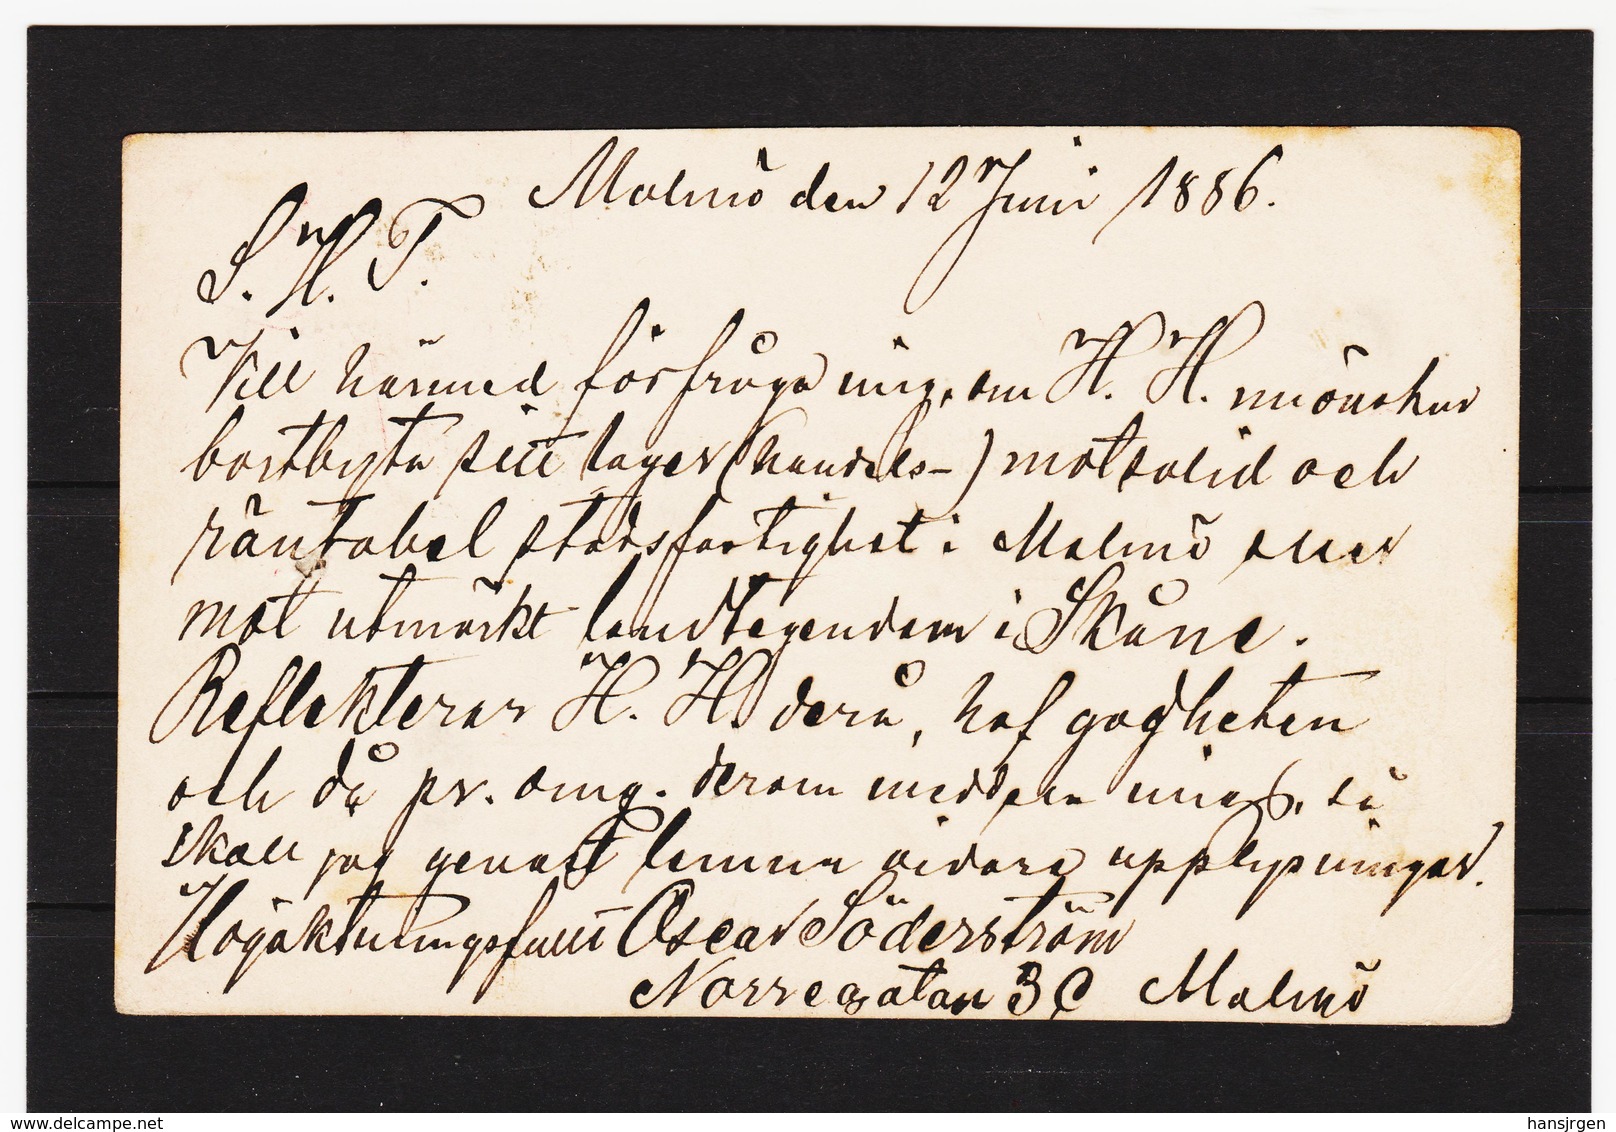 Malmö den 12 Juni 1886.
S. H. T.
Vill härmed förfråga mig, om H. H. mönskar
bortbyta sitt lager (handels-) mot solid och
räntabel stadsfastighet i Malmö eller
mot utmärkt landtegendom i Skåne.
Reflekterar H. H. derå, haf godheten
och då pr. omg. derom meddela mig, så
skall jag genast lemna vidare upplysningar.
Högaktningsfullt Oscar Söderström
Norregatan 3 C Malmö
www.delcampe.net
hansjrgen